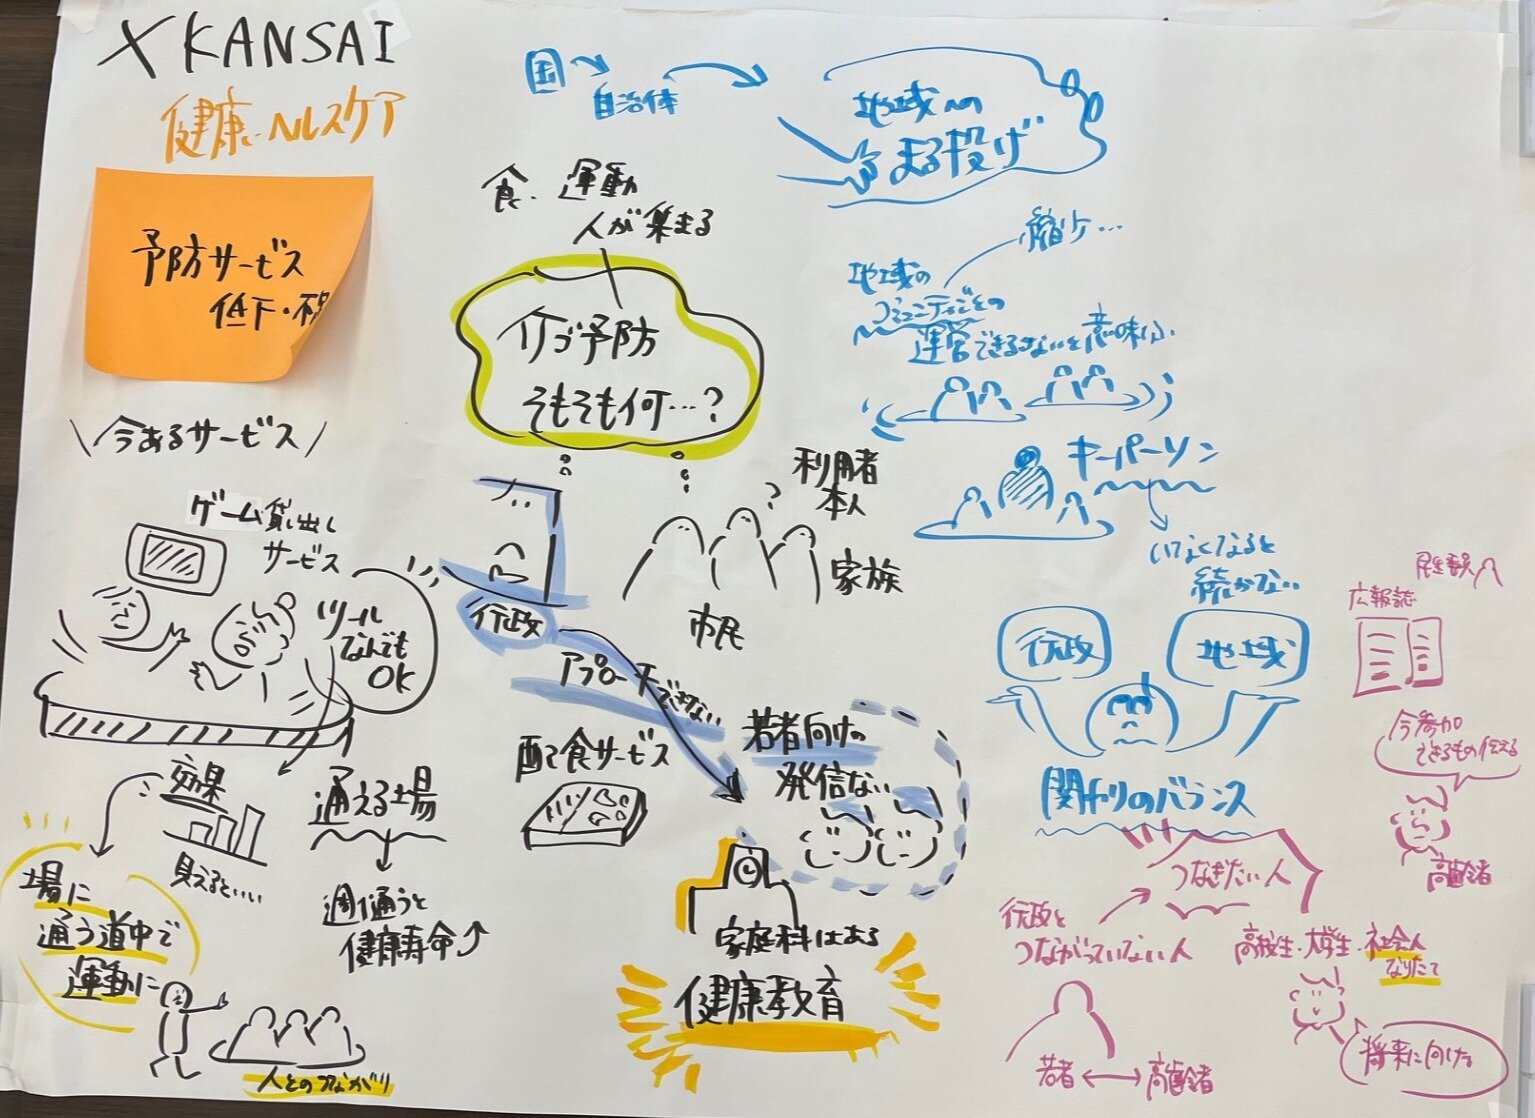 X KANSAI
健康・ヘルスケア
予防サービス
低下・不
\今あるサービス/
ゲーム貸し出し
サービス
ツール
なんでも
OK
効果
見えるといい…
通える場
週1通うと
健康寿命↑
場に
通う道中で
運動に
人とのつながり
食・運動
人が集まる
介ゴ予防
そもそも何…?
行政
アプローチできない
?
利用者
本人
家族
市民
配食サービス
若者向けの
発信ない
家庭科はある
健康教育
国
自治体
地域への
まる投げ
縮小…
地域の
コミュニティごとの
運営できるさないと意味ない
キーパーソン
いなくなると
続かない
行政
地域
関わりのバランス
つなぎたい人
行政と
つながっていない人
若者 ↔ 高齢者
高校生・大学生・社会人
なりたて
将来に向ける
民生委員
広報誌
今参加
できるもの伝える
高齢者